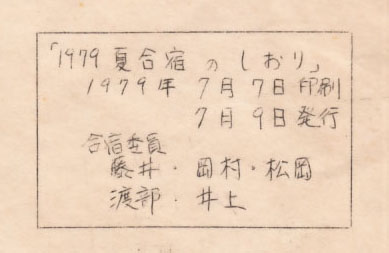 「1979 夏合宿 のしおり」
1979年 7月 7日 印刷
7月 9日 発行
合宿委員
藤井・岡村・松岡
渡部・井上